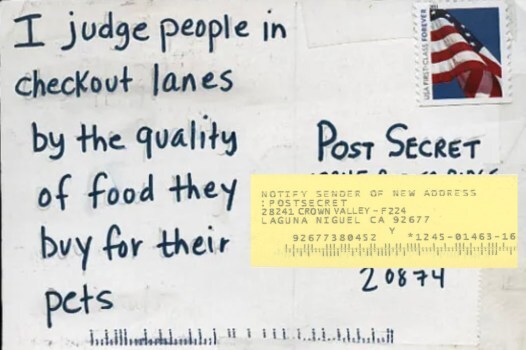 I judge people in
checkout lanes
by the quality
of food they
buy for their
pets
USA FIRST-CLASS FOREVER
POST SECRET
NOTIFY SENDER OF NEW ADDRESS
:POSTSECRET
28241 CROWN VALLEY-F224
LAGUNA NIGUEL CA 92677
Y
92677380452 *1245-01463-16
20874